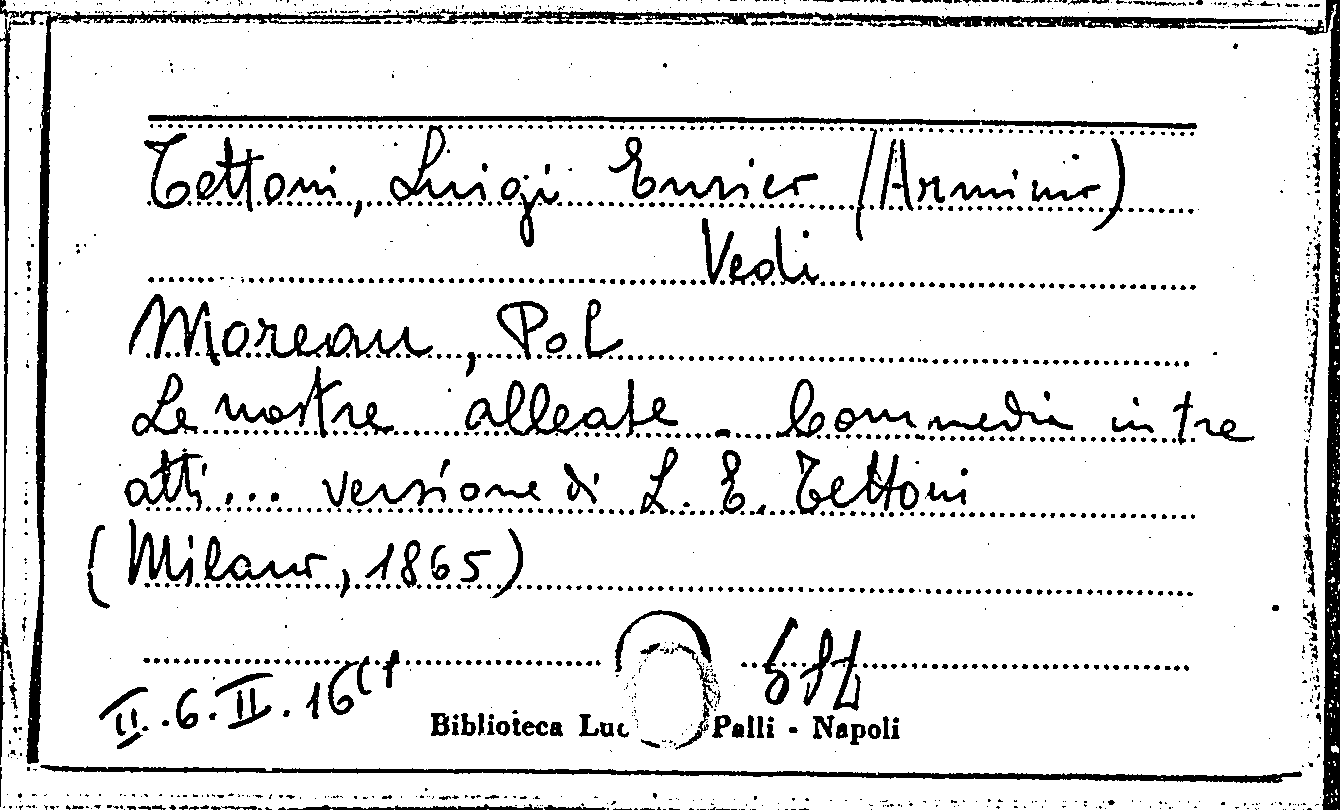 Tettoni, Luigi Enrico (Arminio)
Vedi
Moreau, Pol
Le nostre alleate. Commedia in tre
atti... versione di L. E. Tettoni
(Milano, 1865)
II.6.II.16
Biblioteca Luc Palli - Napoli